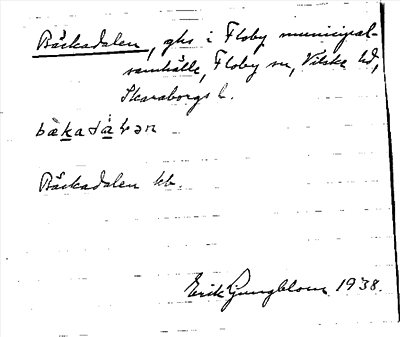 Bäckadalen, ghs i Floby municipal-
samhälle, Floby sn, Vilske hd,
Skaraborgs l.
Bäckadalen kb.
Erik Ljungblom 1938.